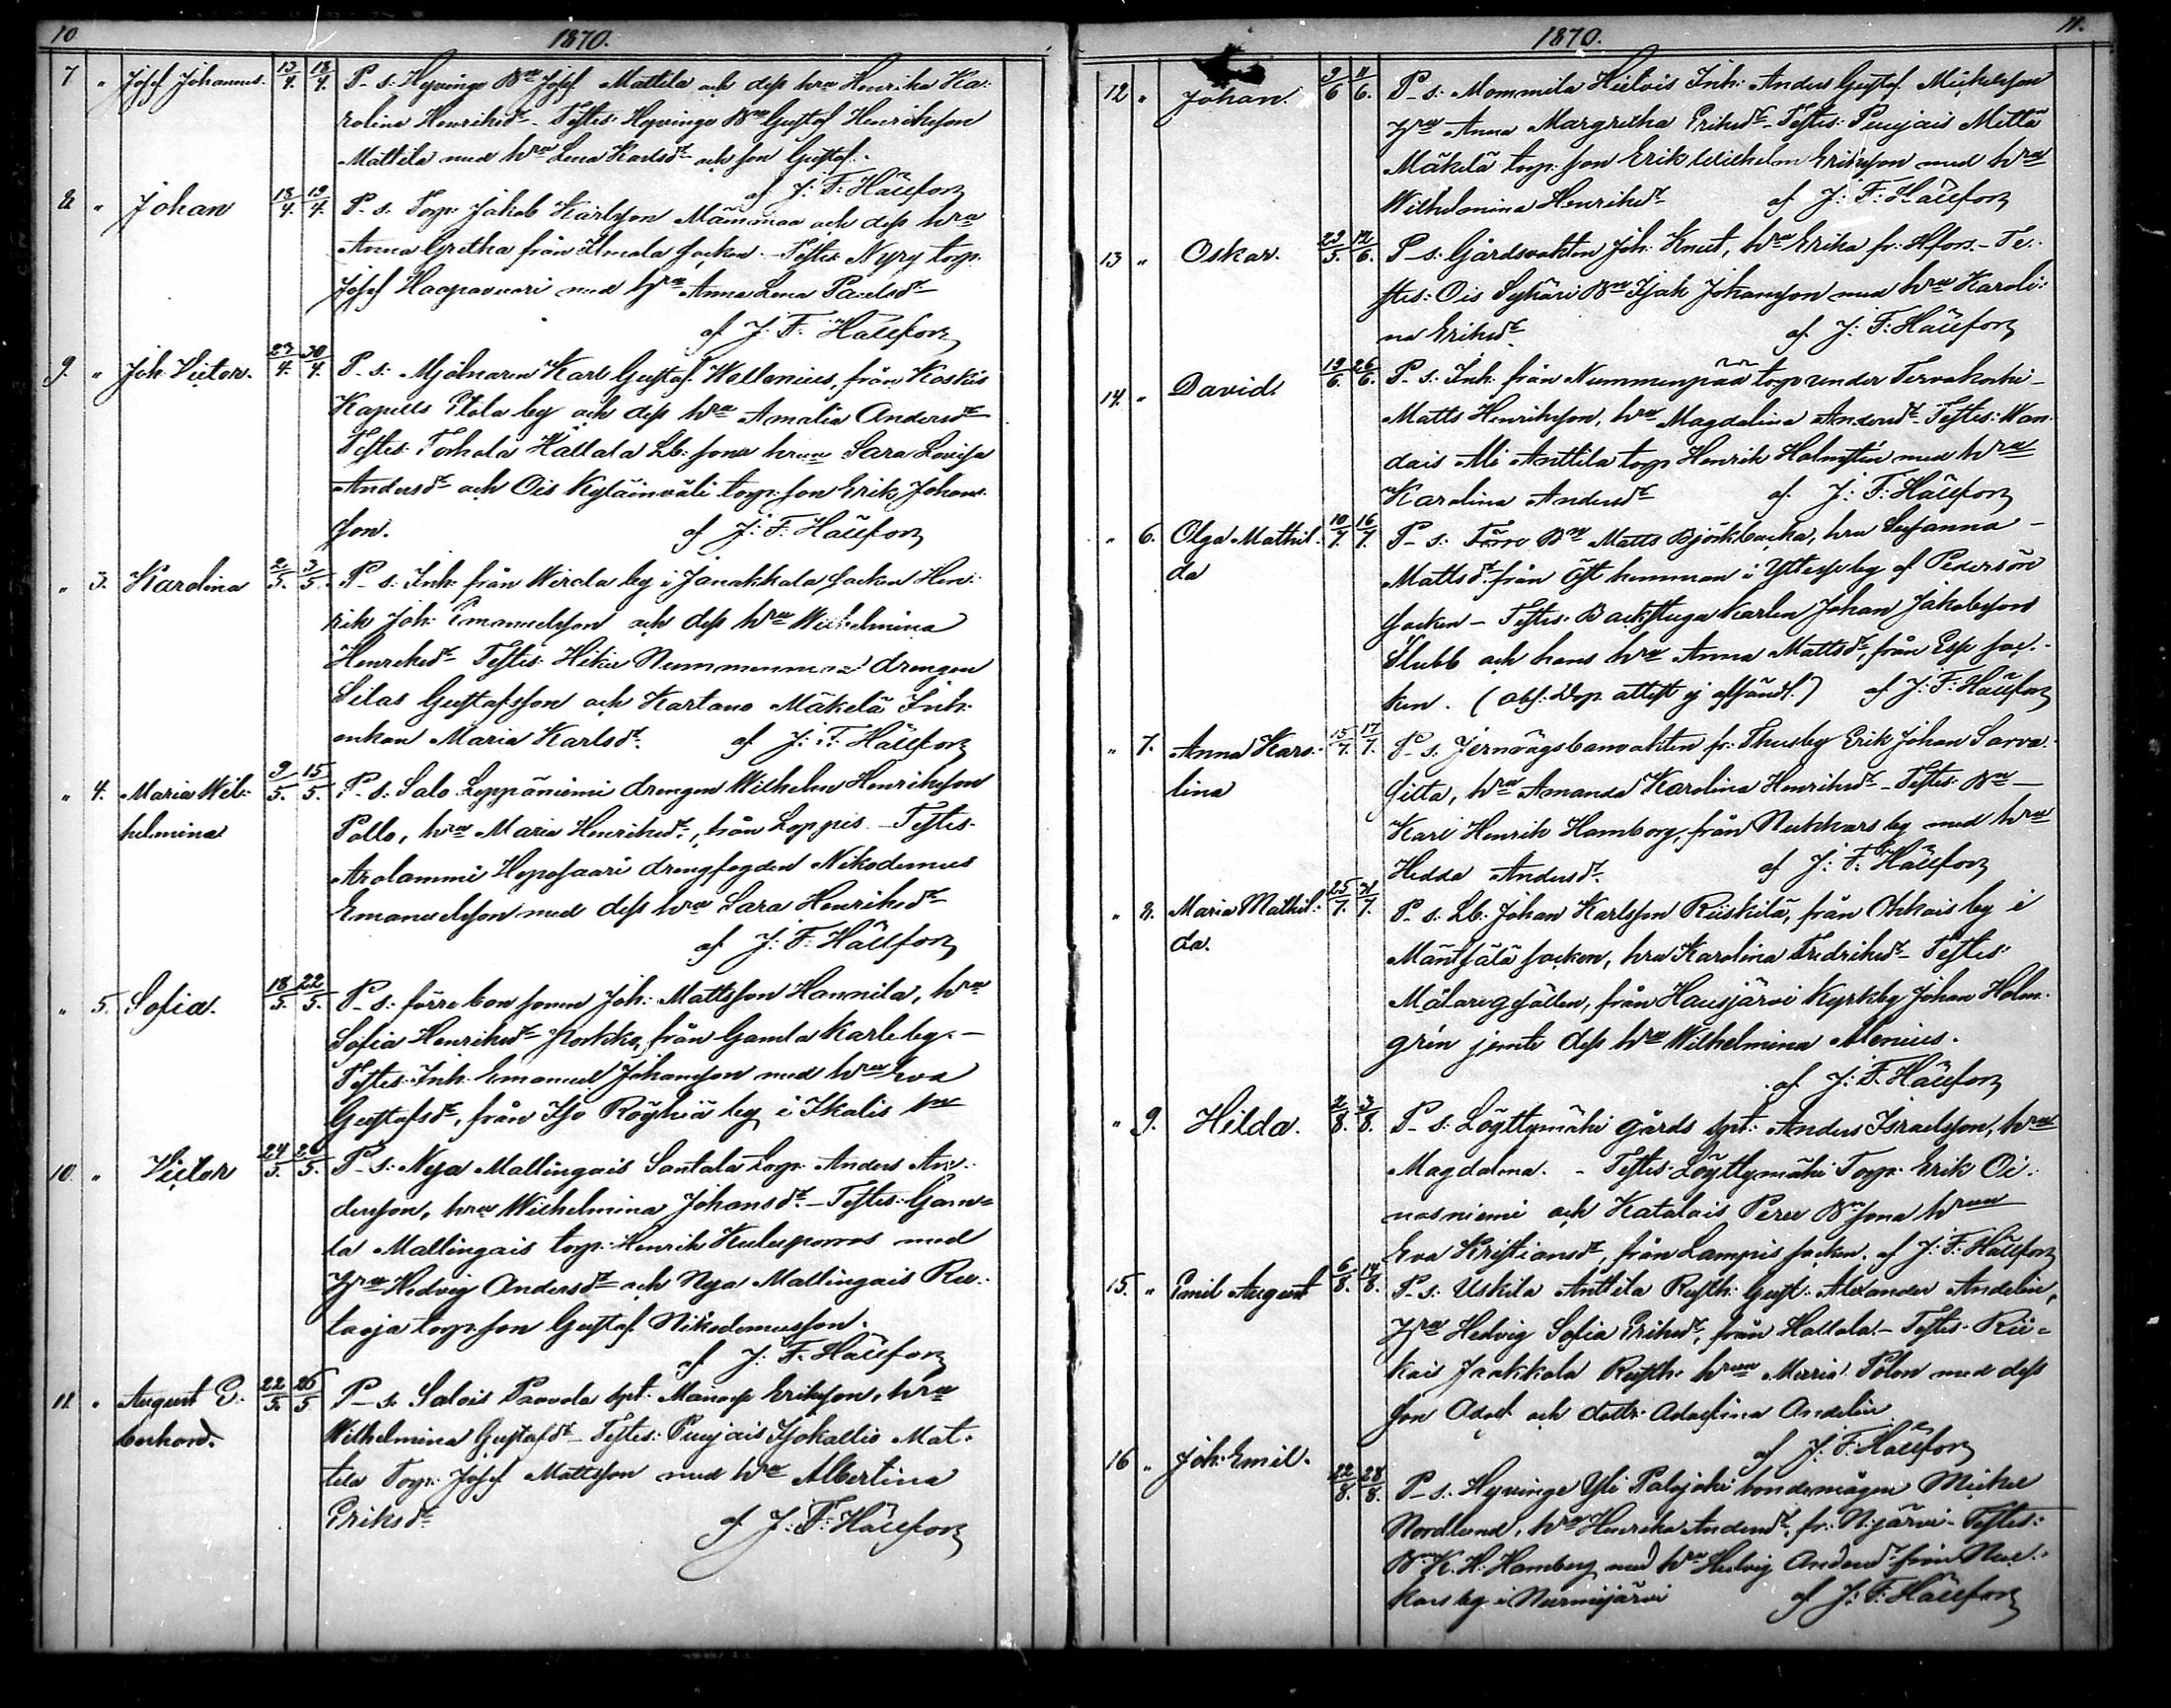 10 1870.
7 " Josef Johannes. 13/4. 18/4. P. s. Hyvinge Bn Josef Mattila och dess hru Henrika Ka:
rolina Henriksdr - Testes: Hyvinge Bn Gustaf Henriksson
Mattila med hru Lena Karlsdr och son Gustaf.
af J: F: Hällfors
8 " Johan 18/4. 19/4. P. s. Torp: Jakob Karlsson Mämmaa och dess hru
Anna Gretha från Urjala socken. - Testes: Nyry torp.
Josef Haapavuori med hru Anna Lena Paulsdr
af J. F. Hällfors
9. " Joh. Victor. 23/4. 30/4. P. s. Mjölnaren Karl Gustaf Wellenius, från Koskis
Kapells Etola by och dess hru Amalia Andersdr
Testes: Torhola Hallala Lb: sons hru Sara Lovisa
Andersdr och Ois Kyläinväli torp: son Erik Johans:
son. af J: F: Hällfors
" 3. Karolina 2/5. 3/5. P. s. Inh: från Wirala by i Janakkala socken Hen:
rik Joh: Emanuelsson och dess hru Wilhelmina
Henriksdr Testes: Hikiä Nummenmaa drengen
Silas Gustafsson och Kartano Mäkelä Inh:
enkan Maria Karlsdr. af J: F: Hällfors
" 4. Maria Wil: 9/5. 15/5. P. s. Salo Leppäniemi drengen Wilhelm Henriksson
helmina Pollo, hru Maria Henriksdr, från Loppis. - Testes:
Arolammi Heposaari drengfogden Nikodemus
Emanuelsson med dess hru Sara Henriksdr
af J. F. Hällfors
" 5. Sofia. 18/5. 22/5. P. s: förre bonsonen Joh: Mattsson Hannila, hru
Sofia Henriksdr Porkko, från Gamla Karleby. -
Testes: Inh: Emanuel Johansson med hru Eva
Gustafsdr, från Iso Röyhiö by i Ikalis sn
10. " Victor 24/5. 26/5. P. s. Nya Mallingais Santala torp: Anders An:
dersson, hru Wilhelmina Johansdr. - Testes: Gam=
la Mallingais torp: Henrik Kulusporras med
hru Hedvig Andersdr och Nya Mallingais Ru:
taoja torp: son Gustaf Nikodemusson.
af J. F. Hällfors
11. " August E: 22/5. 26/5 P. s. Salois Paavola spt. Manasse Eriksson, hru
berhard. Wilhelmina Gustafsdr - Testes: Puujais Isokallio Mat:
tila Torp: Josef Mattsson med hru Albertina
Eriksdr. af J: F: Hällfors
1870. 11.
12 " Johan. 9/6 11/6. P. s. Mommila Hietois Inh: Anders Gustaf Michelsson
hru Anna Margretha Eriksdr - Testes: Puujais Mettä
Mäkelä torp: son Erik Wilhelm Eriksson med hru
Wilhelmina Henriksdr af J: F: Hällfors
13 " Oskar. 29/5. 12/6. P. s. Gårdsvakten Joh: Knut, hru Erika fr: Hfors. - Te:
stes: Ois Sykäri Bn Isak Johansson med hru Karoli:
na Eriksdr. af J: F: Hällfors
14. " David. 19/6. 26/6. P. s. Inh: från Nummenpää torp under Tervakoski -
Matts Henriksson, hru Magdalina Andersdr - Testes: Wan:
dais Ali Anttila torp Henrik Holmstén med hru
Karolina Andersdr af J: F: Hällfors
" 6. Olga Mathil: 10/7. 16/7. P. s: Förre Bn Matts Björkbacka, hru Susanna -
da Mattsdr från Öst hemman i Ytteresse by af Pedersöre
socken - Testes: Backstuga Karlen Johan Jakobsson
Slubb och hans hru Anna Mattsdr, från Esse soc:
ken. (obs: Dop attest ej afsändt.) af J: F: Hällfors
" 7. Anna Karo: 15/7. 17/7. P. s. Jernvägsbanvakten fr: Thusby Erik Johan Sarva:
lina silta, hru Amanda Karolina Henriksdr - Testes: Bn -
Karl Henrik Hamborg, från Nukkars by med hru
Hedda Andersdr. af J: F: Hällfors
" 8. Maria Mathil: 25/7. 31/7. P. s. Lb: Johan Karlsson Riiskilä, från Orkais by i
da. Mäntsälä socken, hru Karolina Fredriksdr - Testes:
Målaregesällen, från Hausjärvi Kyrkby Johan Holm:
grén jemte dess hru Wilhelmina Alenius.
af J: F. Hällfors
" 9. Hilda. 2/8. 3/8. P. s: Löyttymäki gårds spt: Anders Israelsson, hru
Magdalena. - Testes: Löyttymäki Torp: Erik Oi:
nasniemi och Katalois Peru Bn sons hru
Eva Kristiansdr, från Lampis socken. af J: F: Hällfors
15. " Emil August 6/8. 14/8. P. s: Uskila Anttila Rusth: Gust. Alexander Andelin,
hru Hedvig Sofia Eriksdr, från Hattula. - Testes: Rii=
kois Jaakkola Rusth: hru Maria Polon med dess
son Adolf och dottr: Adolfina Andelin
af J: F: Hällfors
16 " Joh: Emil. 22/8. 28/8. P. s. Hyvinge Yli Palojoki bondemågen Michel
Nordlund, hru Henrika Andersdr, fr: N:järvi - Testes:
Bn K. H. Hamberg med hru Hedvig Andersdr från Nuc:
kars by i Nurmijärvi af J: F: Hällfors